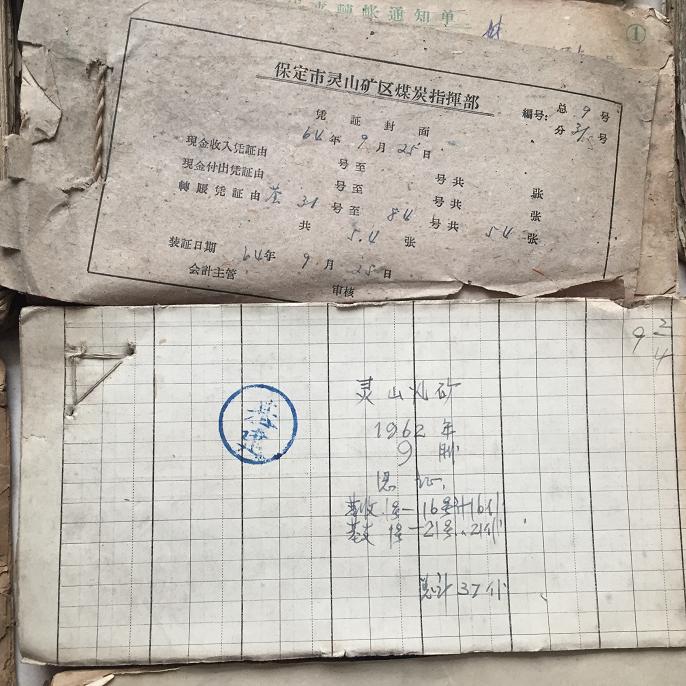 転帐通知单
①
保定市灵山矿区煤炭指揮部
凭証封面
編号: 总 9 号
分 31 号
64年 9 月 25 日
現金收入凭証由 号至 号共 张
現金付出凭証由 号至 号共 张
轉賬凭証由 基 31 号至 84 号共 54 张
共 54 张
装証日期 64年 9 月 25 日
会計主管 审核
9 2/4
灵山 矿
1962 年
9 月
凭证
基收 1号-16号计16份
基支 1号-21号 21份
总计37份